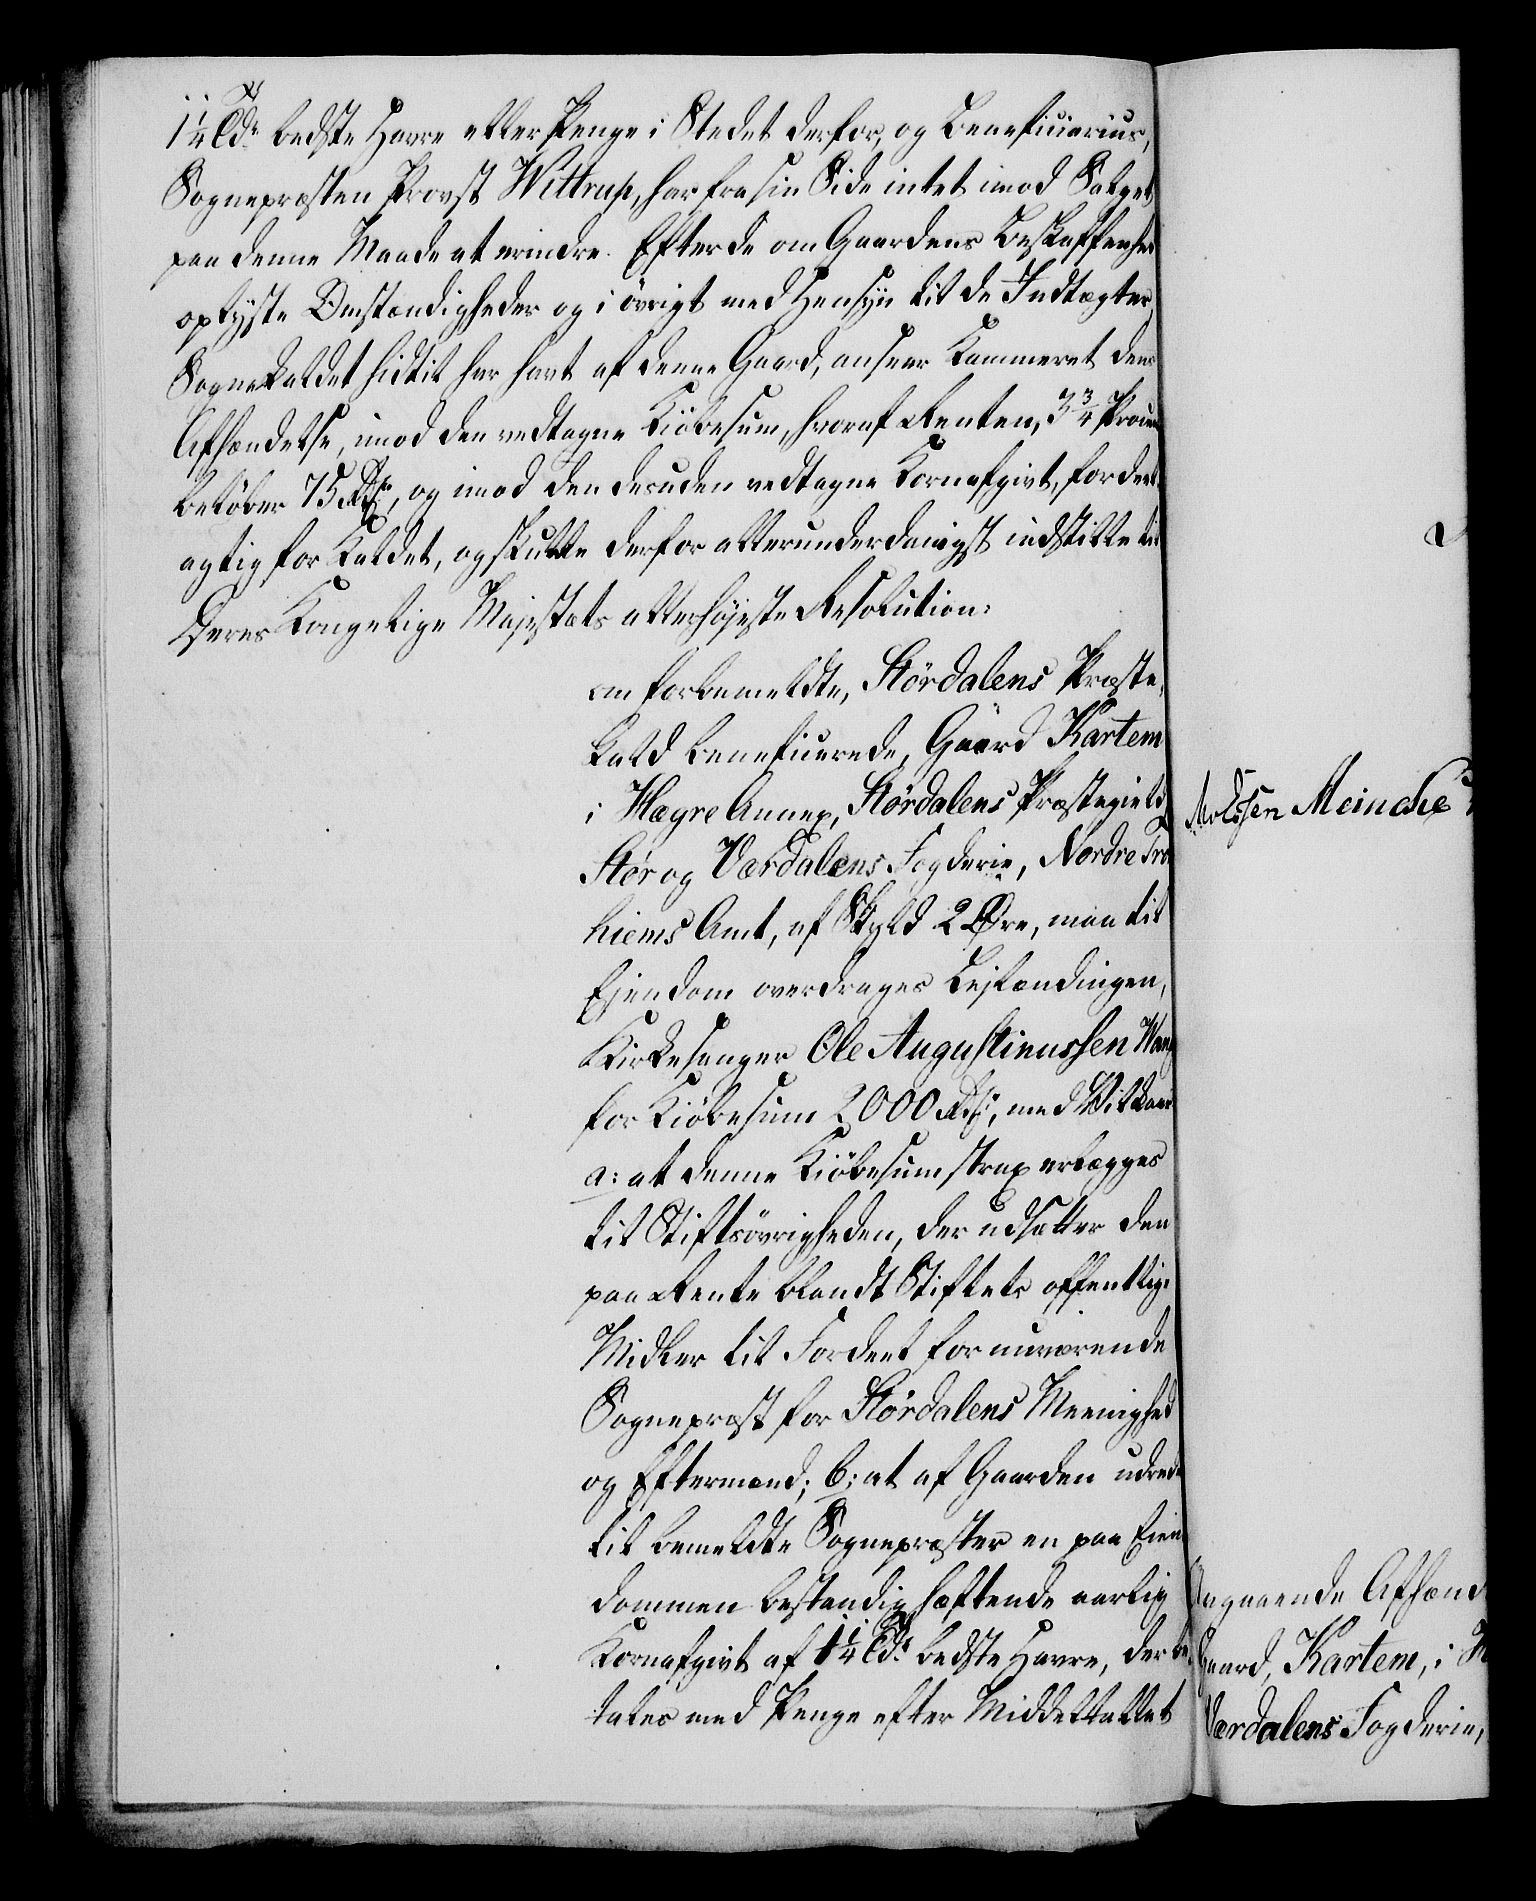 1¼ Tdr bedste Havre eller Penge i Stedet derfor, og Beneficiarius,
Sognepræsten Provst Wittrup, har fra sin Side intet imod Salget
paa denne Maade at erindre. Efter de om Gaardens Beskaffenhed
oplyste Omstændigheder og i övrigt med Hensyn til de Indtægter,
Sognekaldet hidtil har havt af denne Gaard, anseer Kammeret dens
Afhændelse, imod den vedtagne Kiöbesum, hvoraf Renten, 3¾ Procent
belöber 75 Rdlr, og imod den desuden vedtagne Kornafgivt, fordeel-
agtig for Kaldet, og skulle derfor allerunderdanigst indstille til
Deres Kongelige Majestæts allerhöjeste Resolution:
om forbemeldte, Stördalens Præste-
kald beneficerede, Gaard Kartem
i Hægre Annex, Stördalens Præstegield,
Stör og Værdalens Fogderie, Nordre Tron-
hiems Amt, af Skyld 2 Øre, maa til
Ejendom overdrages Leilændingen,
Kirkesanger Ole Augustinussen Wang
for Kiöbesum 2000 Rdlr, med Vilkaar
a: at denne Kiöbesum strax erlægges
til Stiftsövrigheden, der udsætter den
paa Rente blandt Stiftets offentlige
Midler til Fordeel for nuværende
Sognepræst for Stördalens Meenighed
og Eftermænd; b: at af Gaarden udredes
til bemeldte Sognepræster en paa Eien-
dommen bestandig hæftende aarlig
Kornafgivt af 1¼ Tdr bedste Havre, der be-
tales med Penge efter Middeltallet
Meincke
Angaaende Afhænd
Gaard, Kartem, i
Værdalens Fogderie,